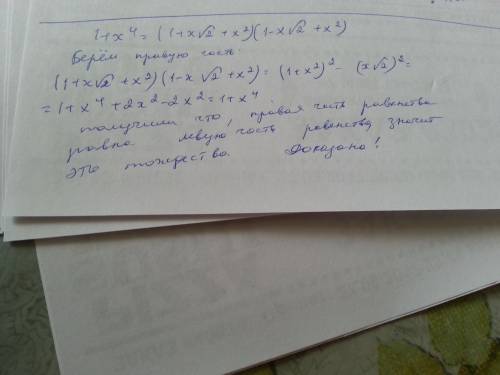 1+x⁴ = (1+x√2 + x²)(1-x√2 + x²)
Берём правую часть:
(1+x√2 + x²)(1-x√2 + x²) = (1+x²)² - (x√2)² =
= 1+x⁴ + 2x² - 2x² = 1+x⁴
получили что, правая часть равенства
равна левую часть равенства, значит
это тожества. Доказано!